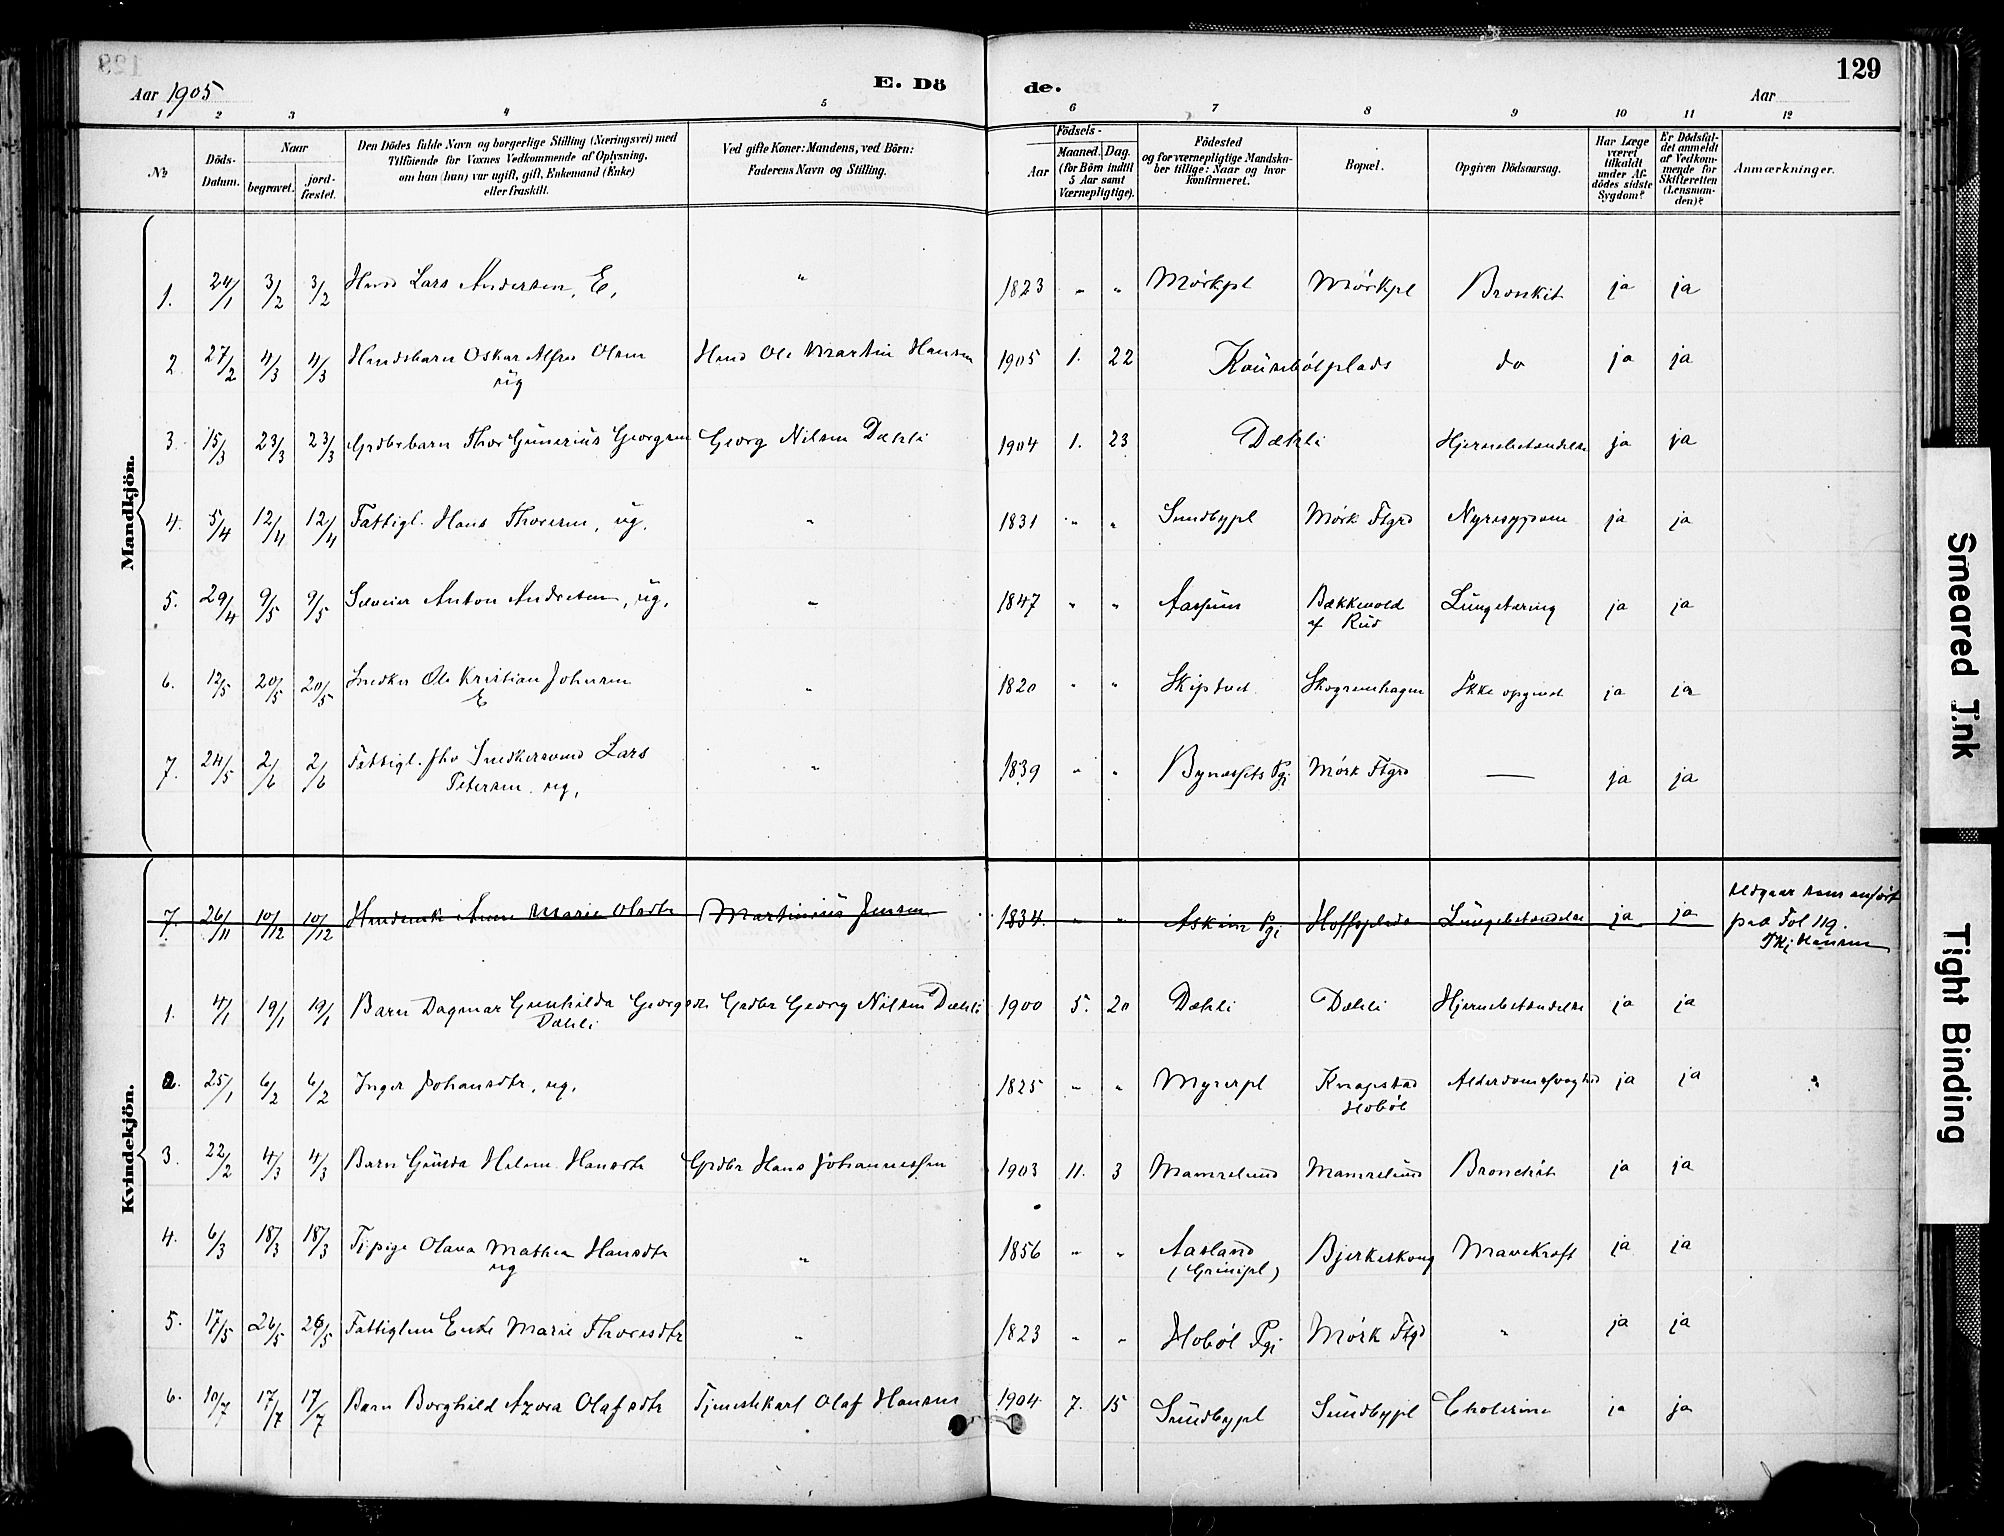 129
Aar 1905
E. Dö de.
Aar
1 2 3 4 5 6 7 8 9 10 11 12
No
Döds-Datum.
Naar
begravet.
jord-fæstet.
Den Dödes fulde Navn og borgerlige Stilling (Næringsvei) med
Tilföiende for Voxnes Vedkommende af Oplysning,
om han (hun) var ugift, gift, Enkemand (Enke)
eller fraskilt.
Ved gifte Koner: Mandens, ved Börn:
Faderens Navn og Stilling.
Födsels-
Aar
Maaned. Dag.
(for Börn indtil
5 Aar samt
Værnepligtige).
Födested
og for værnepligtige Mandska-
ber tillige: Naar og hvor
konfirmeret.
Bopæl.
Opgiven Dödsaarsag.
Har Læge
været
tilkaldt
under Af-
dödes sidste
Sygdom?
Er Dödsfal-
det anmeldt
af Vedkom-
mende for
Skifteretten
(Lensman-
den)?
Anmærkninger.
Mandkjön.
1. 24/1 3/2 3/2 Husm Lars Andersen, E, " 1823 " " Mörkpl Mörkpl Bronkit ja ja
2 27/2 4/3 4/3 Husmsbarn Oskar Alfred Olsen Husm Ole Martin Hansen 1905 1. 22 plads do ja ja
ug
3. 15/3 23/3 23/3 Grdbrbarn Thor Gunerius Georgsen Georg Nilsen Dæhli 1904 1. 23 Dæhli Hjernebetændelse ja ja
4. 5/4 12/4 12/4 Fattigl. Hans Thoresen, ug. " 1831 " " Sundbypl Mörk Ftgrd Nyresygdom ja ja
5. 29/4 9/5 9/5 Anton Andresen, ug. " 1847 " " Bækkevold Lungetæring ja ja
af Rud
6. 12/5 20/5 20/5 Snedker Ole Kristian Johnsen " 1820 " " Skiptvet Ikke opgivet ja ja
E
7. 24/5 2/6 2/6 Fattigl. fhv Snedkersvend Lars " 1839 " " Pgj Mörk Ftgrd — ja ja
Petersen, ug,
Kvindekjön.
7. 26/11 10/12 10/12 Anne Marie Olsdtr Martinius Jensen 1834 " " Askim Pgj Hoffsplads Lungebetændelse ja ja Udgaar som anført
paa Fol 119.
Hansen
1. 4/1 19/1 19/1 Barn Dagmar Gunhilda Georgsdtr Grdbr Georg Nilsen Dæhli 1900 5. 20 Dæhli Dæhli Hjernebetændelse ja ja
Dæhli
2. 25/1 6/2 6/2 Inger Johansdtr, ug, 1825 " " Myrerpl Knapstad Alderdomssvaghed ja ja "
Hobøl
3. 22/2 4/3 4/3 Barn Gunda Helene Hansdtr Grdbr Hans Johannessen 1903 11. 3 Mamrelund Mamrelund Bronchit ja ja
4. 6/3 18/3 18/3 Tjpige Olava Mathea Hansdtr " 1856 " " Aasland Bjerkeskoug Mavekræft ja ja
ug (Grinipl)
5. 17/5 26/5 26/5 Fattiglem Enke Marie Thoresdtr " 1823 " " Hobøl Pgj Mörk Ftgd " ja ja
6. 10/7 17/7 17/7 Barn Borghild Azora Olafsdtr Tjenestekarl Olaf Hansen 1904 7. 15 Sundbypl Sundbypl Cholerine ja ja
Smeared Ink
Tight Binding